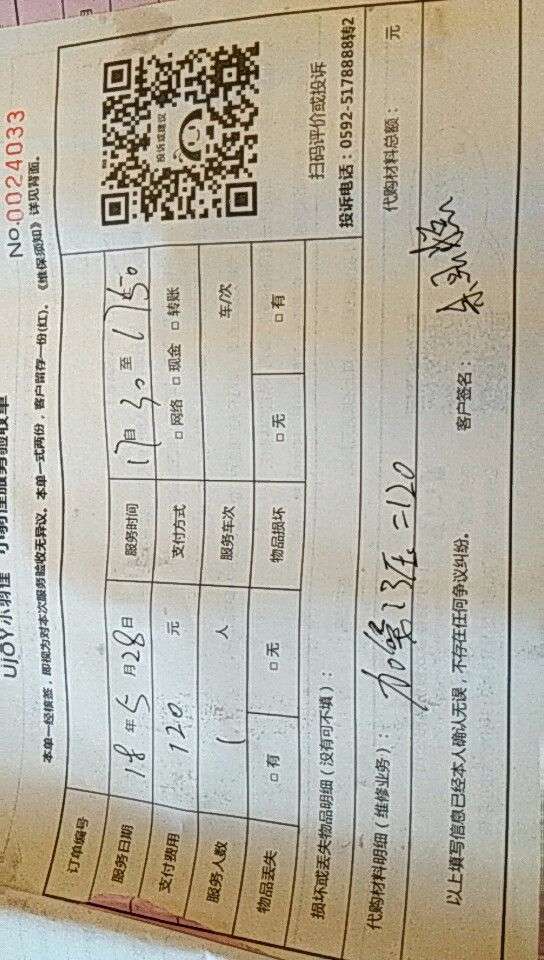 No.0024033
UJOY小羽佳 小羽佳服务验收单
本单一经核签，即视为对本次服务验收无异议。本单一式两份，客户留存一份(红)。《维保须知》详见背面。
订单编号
服务日期 18年5月28日 服务时间 17自30至1750止
支付费用 120 元 支付方式 □网络 □现金 □转账
服务人数 1 人 服务车次 车/次
物品丢失 □有 □无 物品损坏 □无 □有
投诉或建议
扫码评价或投诉
投诉电话：0592-5178888转2
损坏或丢失物品明细（没有可不填）：
代购材料明细（维修业务）： =120 代购材料总额： 元
以上填写信息已经本人确认无误，不存在任何争议纠纷。 客户签名：